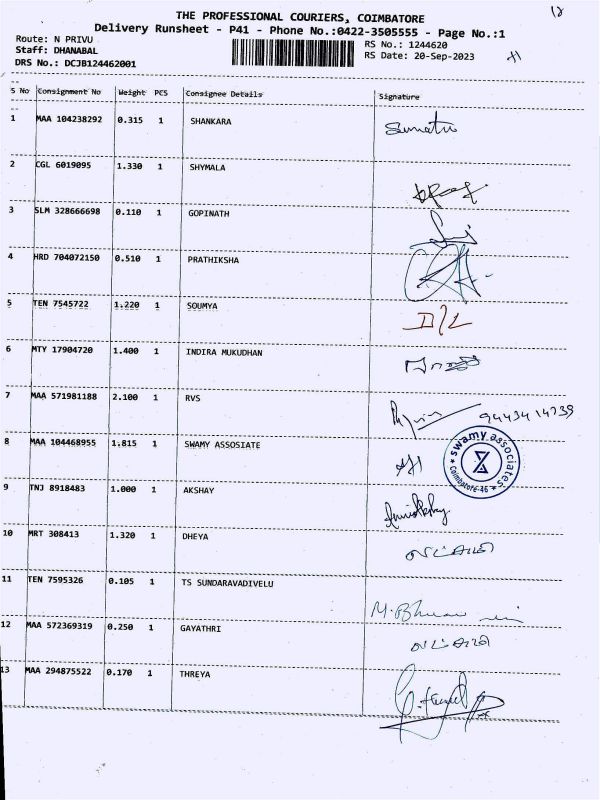 THE PROFESSIONAL COURIERS, COIMBATORE
Delivery Runsheet - P41 - Phone No.:0422-3505555 - Page No.:1
Route: N PRIVU
Staff: DHANABAL
DRS No.: DCJB124462001
RS No.: 1244620
RS Date: 20-Sep-2023
S No Consignment No Weight PCS Consignee Details Signature
1 MAA 104238292 0.315 1 SHANKARA
2 CGL 6019095 1.330 1 SHYMALA
3 SLM 328666698 0.110 1 GOPINATH
4 HRD 704072150 0.510 1 PRATHIKSHA
5 TEN 7545722 1.220 1 SOUMYA D/L
6 MTY 17904720 1.400 1 INDIRA MUKUDHAN
7 MAA 571981188 2.100 1 RVS
8 MAA 104468955 1.815 1 SWAMY ASSOSIATE
swamy associates
Coimbatore-46
9 TNJ 8918483 1.000 1 AKSHAY
10 MRT 308413 1.320 1 DHEYA
11 TEN 7595326 0.105 1 TS SUNDARAVADIVELU
12 MAA 572369319 0.250 1 GAYATHRI
13 MAA 294875522 0.170 1 THREYA